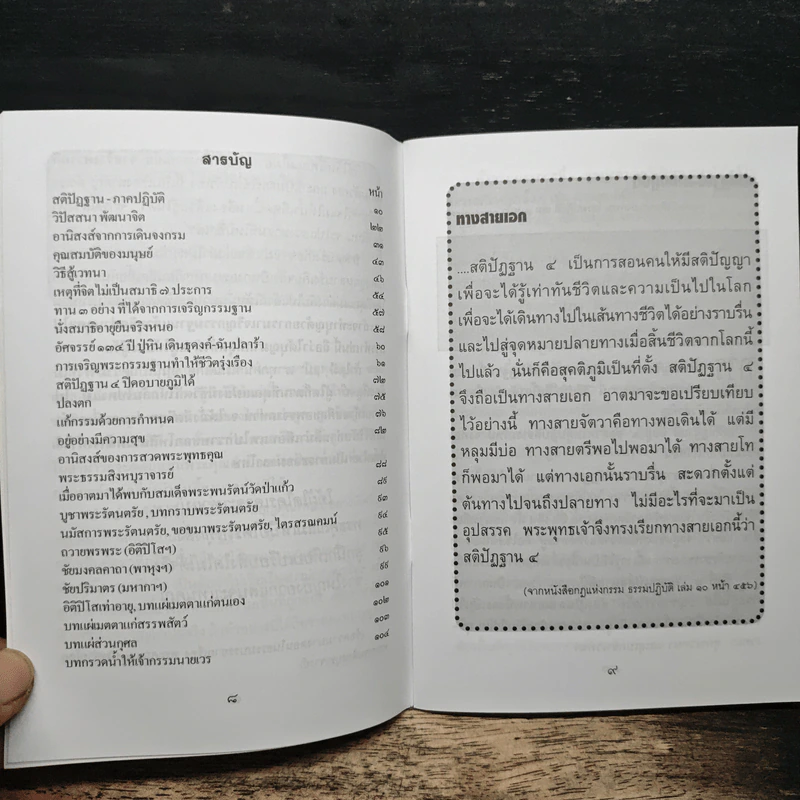 สารบัญ
หน้า
สติปัฏฐาน - ภาคปฏิบัติ ๑๐
วิปัสสนา พัฒนาจิต ๒๒
อานิสงส์จากการเดินจงกรม ๓๑
คุณสมบัติของมนุษย์ ๔๓
วิธีสู้เวทนา ๔๖
เหตุที่จิตไม่เป็นสมาธิ ๗ ประการ ๕๔
ทาน ๓ อย่าง ที่ได้จากการเจริญกรรมฐาน ๕๗
นั่งสมาธิอายุยืนจริงหนอ ๕๘
อัศจรรย์ ๑๓๔ ปี ปู่หิน เดินธุดงค์-ฉันปลาร้า ๖๐
การเจริญพระกรรมฐานทำให้ชีวิตรุ่งเรือง ๖๑
สติปัฏฐาน ๔ ปิดอบายภูมิได้ ๗๒
ปลงตก ๗๕
แก้กรรมด้วยการกำหนด ๗๖
อยู่อย่างมีความสุข ๘๒
อานิสงส์ของการสวดพระพุทธคุณ
พระธรรมสิงหบุราจารย์ ๘๘
เมื่ออาตมาได้พบกับสมเด็จพระพนรัตน์วัดป่าแก้ว ๘๙
บูชาพระรัตนตรัย , บทกราบพระรัตนตรัย ๙๓
นมัสการพระรัตนตรัย, ขอขมาพระรัตนตรัย, ไตรสรณคมน์ ๙๔
ถวายพรพระ (อิติปิโสฯ) ๙๕
ชัยมงคลคาถา (พาหุงฯ) ๙๖
ชัยปริมาตร (มหากาฯ) ๙๙
อิติปิโสเท่าอายุ, บทแผ่เมตตาแก่ตนเอง ๑๐๑
บทแผ่เมตตาแก่สรรพสัตว์ ๑๐๒
บทแผ่ส่วนกุศล ๑๐๓
บทกรวดน้ำให้เจ้ากรรมนายเวร ๑๐๔
๘
ทางสายเอก
....สติปัฏฐาน ๔ เป็นการสอนคนให้มีสติปัญญา
เพื่อจะได้รู้เท่าทันชีวิตและความเป็นไปในโลก
เพื่อจะได้เดินทางไปในเส้นทางชีวิตได้อย่างราบรื่น
และไปสู่จุดหมายปลายทางเมื่อสิ้นชีวิตจากโลกนี้
ไปแล้ว นั่นก็คือสุคติภูมิเป็นที่ตั้ง สติปัฏฐาน ๔
จึงถือเป็นทางสายเอก อาตมาจะขอเปรียบเทียบ
ไว้อย่างนี้ ทางสายจัตวาคือทางพอเดินได้ แต่มี
หลุมมีบ่อ ทางสายตรีพอไปพอมาได้ ทางสายโท
ก็พอมาได้ แต่ทางเอกนั้นราบรื่น สะดวกตั้งแต่
ต้นทางไปจนถึงปลายทาง ไม่มีอะไรที่จะมาเป็น
อุปสรรค พระพุทธเจ้าจึงทรงเรียกทางสายเอกนี้ว่า
สติปัฏฐาน ๔
(จากหนังสือกฎแห่งกรรม ธรรมปฏิบัติ เล่ม ๑๐ หน้า ๔๕๖)
๙